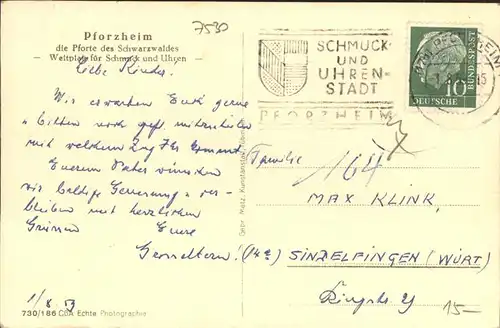 7530
Pforzheim
die Pforte des Schwarzwaldes
– Weltplatz für Schmuck und Uhren –
Liebe Kinder.
Wir erwarten Euch gerne
u bitten noch gefl. mitzuteilen
mit welchem Zug Ihr kommt.
Eurem Vater wünschen
wir baldige Genesung u ver-
bleiben mit herzlichen
Grüssen Eure
Grosseltern.
1/8.59
730/186 Echte Photographie
Gebr. Metz, Kunstanstalt,
SCHMUCK-
UND
UHREN-
STADT
PFORZHEIM
PFORZHEIM
10
DEUTSCHE BUNDESPOST
Familie
164
MAX KLINK,
(14a) SINDELFINGEN (WÜRT)
15-